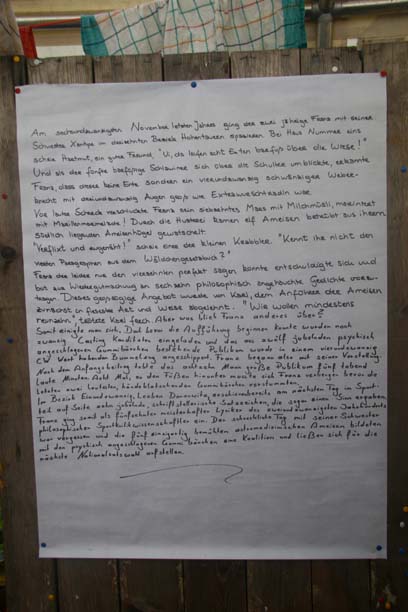 Am sechsundzwanzigsten November letzten Jahres ging der zwei jährige Franz mit seiner
Schwester Xantya im dreizehnten Bezirk Hohentauren spazieren. Bei Haus Nummer eins
schrie Hartmut, ein guter Freund, "Ui, da laufen acht Enten barfuß über die Wiese!"
Und als der fünfte barfüßige sich über die Schulter umblickte, erkannte
Franz, dass dieser keine Ente sondern ein vierundzwanzig schwänziger Weber-
knecht mit dreiundzwanzig Augen groß wie Extrawurstradln war.
Vor lauter Schreck verschluckte Franz sein siebzehntes Maas mit Milchmüsli, mariniert
mit Marillenmarmelade! Durch die Husterei kamen elf Ameisen betrübt aus ihrem
südlich liegenden Ameisenhügel gewatschelt.
"Verflixt und zugenäht!" schrie eine der kleinen Krabbler. "Kennt ihr nicht den
Paragraphen aus dem Wildschongesetzbuch?"
Franz der leider nur den vierzehnten perfekt sagen konnte entschuldigte sich und
bot zur Wiedergutmachung an sechzehn philosophisch angehauchte Gedichte vorzu-
tragen. Dieses Angebot wurde von Karel, dem Anführer der Ameisen
zunächst in Art und Weise abgelehnt. "Wir wollen mindestens
neunzehn", tobte Karel frech. Aber was blieb Franz anderes über?
Somit einigte man sich. Dat bevor die Aufführung beginnen konnte wurden noch
zwanzig Casting Kandidaten eingeladen und das aus zwölf jubelnden psychisch
angeschlagenen Gummibärchen bestehende Publikum wurde in einem vierundzwanzig
CW Vent habenden Bummelzug angeschippert. Franz begann also mit seiner Vorstellung.
Nach dem Anfangsbeitrag tobte das achtzehn Mann große Publikum fünf lebend
laute Minuten. Acht Mal, zu den Füßen hinunter musste sich Franz verbeugen bevor die
letzten zwei lautesten, händeklatschenden Gummibärchen verstummten.
Im Bezirk Einundzwanzig, Leoben Donawitz, erschienen bereits am nächsten Tag im Sport-
teil auf Seite zehn gebildete, schriftstellerische Sodazeichen, die sogar einen Sinn ergaben.
Franz ging somit als fünfzehnter meisterhafter Lyriker des zweiundzwanzigsten Jahrhunderts
philosophischer Sportkultwissenschaftler ein. Der schreckliche Tag mit seiner Schwester
war vergessen und die fünf einzigartig bemühten astromedizinischen Ameisen bildeten
mit den psychisch angeschlagenen Gummibärchen eine Koalition und ließen sich für die
nächste Nationalratswahl aufstellen.